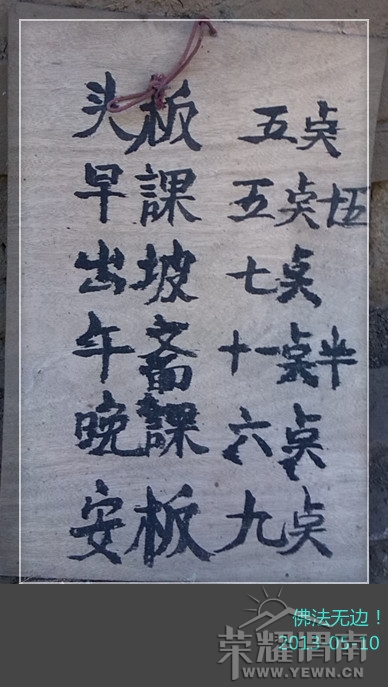 头板 五点
早課 五点十五
出坡 七点
午斋 十一点半
晚課 六点
安板 九点
佛法无边！
2013-05-10
荣耀渭南
WWW.YEWN.CN